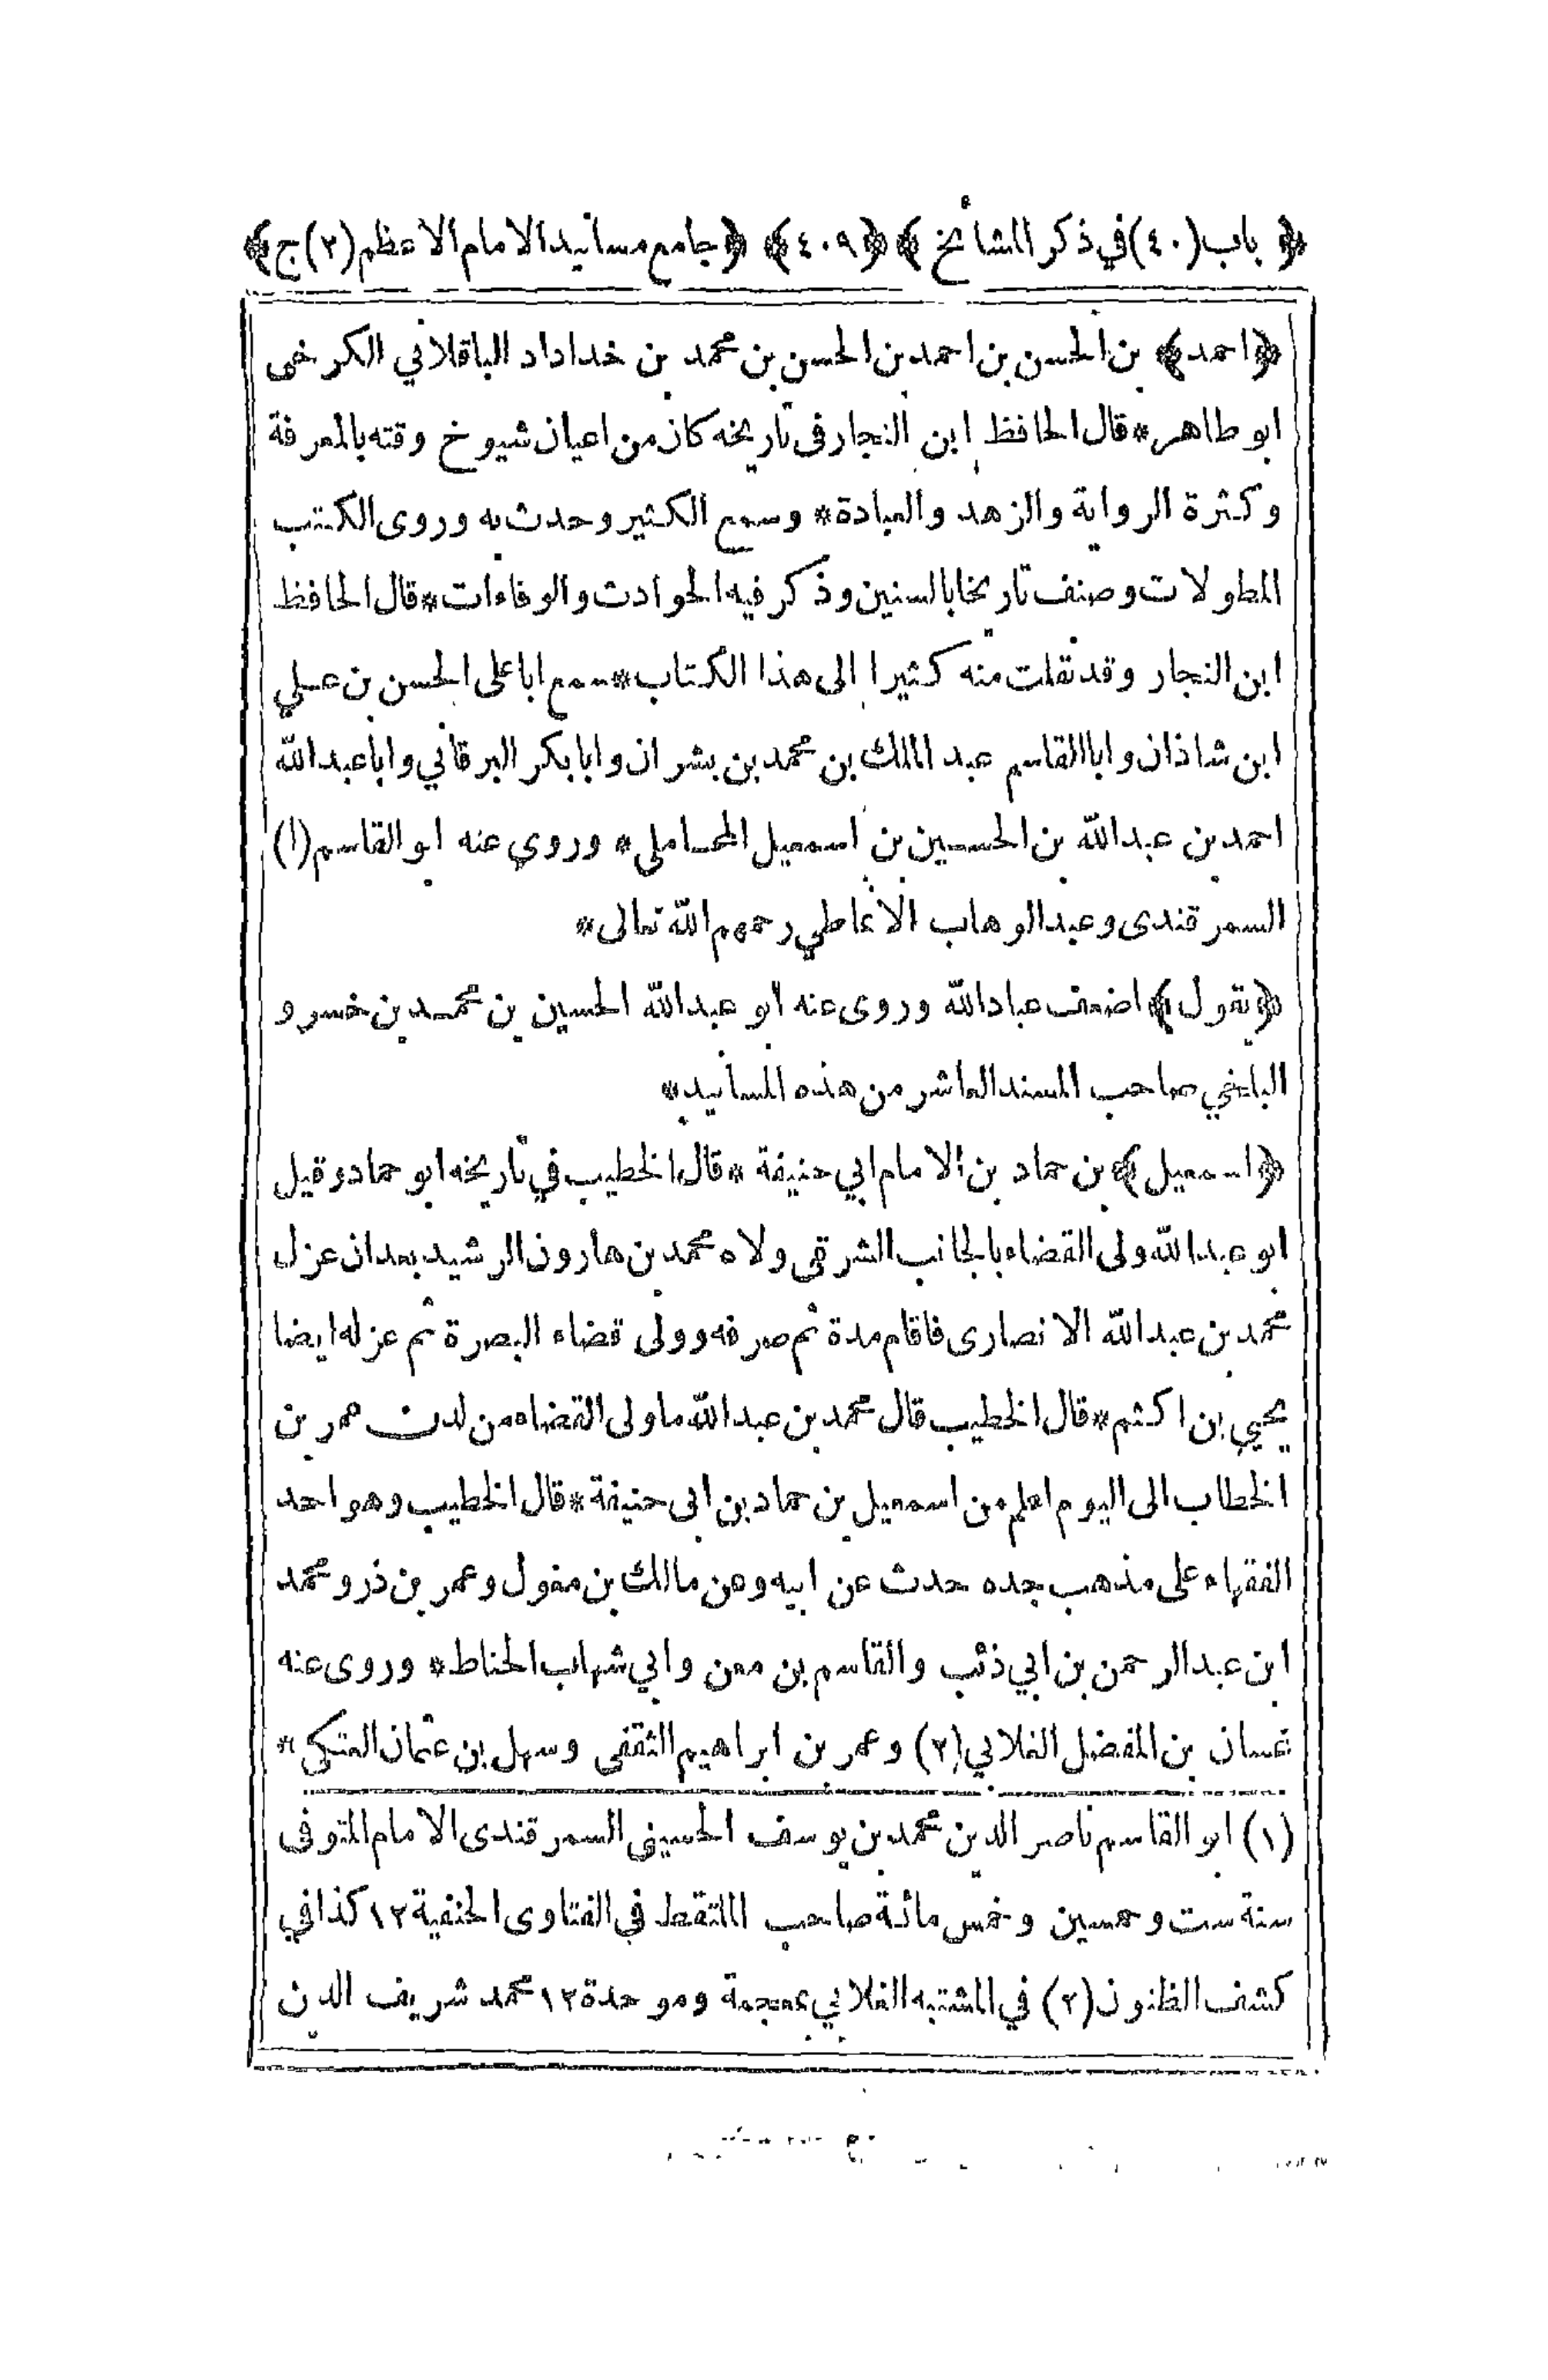 ﴿ باب (٤٠) في ذكر المشائخ ﴾ ﴿٤٠٩﴾ ﴿ جامع مسانيد الامام الاعظم (٢) ج ﴾
﴿احمد﴾ بن الحسن بن احمد بن الحسن بن محمد بن خداداد الباقلاني الكرخى
ابو طاهر * قال الحافظ ابن النجار فى تاريخه كان من اعيان شيوخ وقته بالمعرفة
وكثرة الرواية والزهد والعبادة * وسمع الكثير وحدث به وروى الكتب
المطولات وصنف تاريخا بالسنين وذكر فيه الحوادث والوفاءات * قال الحافظ
ابن النجار وقد نقلت منه كثيرا الى هذا الكتاب * سمع ابا على الحسن بن علي
ابن شاذان وابا القاسم عبد الملك بن محمد بن بشران وابا بكر البرقاني وابا عبد الله
احمد بن عبد الله بن الحسين بن اسمعيل المحاملى * وروي عنه ابو القاسم (١)
السمرقندى وعبد الوهاب الانماطي رحمهم الله تعالى *
﴿يقول﴾ اضعف عباد الله وروى عنه ابو عبد الله الحسين بن محمد بن خسرو
البلخي صاحب المسند العاشر من هذه المسانيد *
﴿اسمعيل﴾ بن حماد بن الامام ابي حنيفة * قال الخطيب في تاريخه ابو حماد وقيل
ابو عبد الله ولى القضاء بالجانب الشرقى ولاه محمد بن هارون الرشيد بعد ان عزل
محمد بن عبد الله الانصارى فاقام مدة ثم صرفه وولى قضاء البصرة ثم عزله ايضا
يحيي بن اكثم * قال الخطيب قال محمد بن عبد الله ما ولى القضاء من لدن عمر بن
الخطاب الى اليوم اعلم من اسمعيل بن حماد بن ابى حنيفة * قال الخطيب وهو احد
الفقهاء على مذهب جده حدث عن ابيه وعن مالك بن مغول وعمر بن ذر ومحمد
ابن عبد الرحمن بن ابي ذئب والقاسم بن معن وابي شهاب الحناط * وروى عنه
غسان بن المفضل الغلابي (٢) وعمر بن ابراهيم الثقفى وسهل بن عثمان العتكى *
(١) ابو القاسم ناصر الدين محمد بن يوسف الحسينى السمرقندى الامام المتوفى
سنة ست وخمسين وخمس مائة صاحب الملتقط في الفتاوى الحنفية ١٢ كذا في
كشف الظنون (٢) في المشتبه الغلابي بمعجمة وموحدة ١٢ محمد شريف الدين